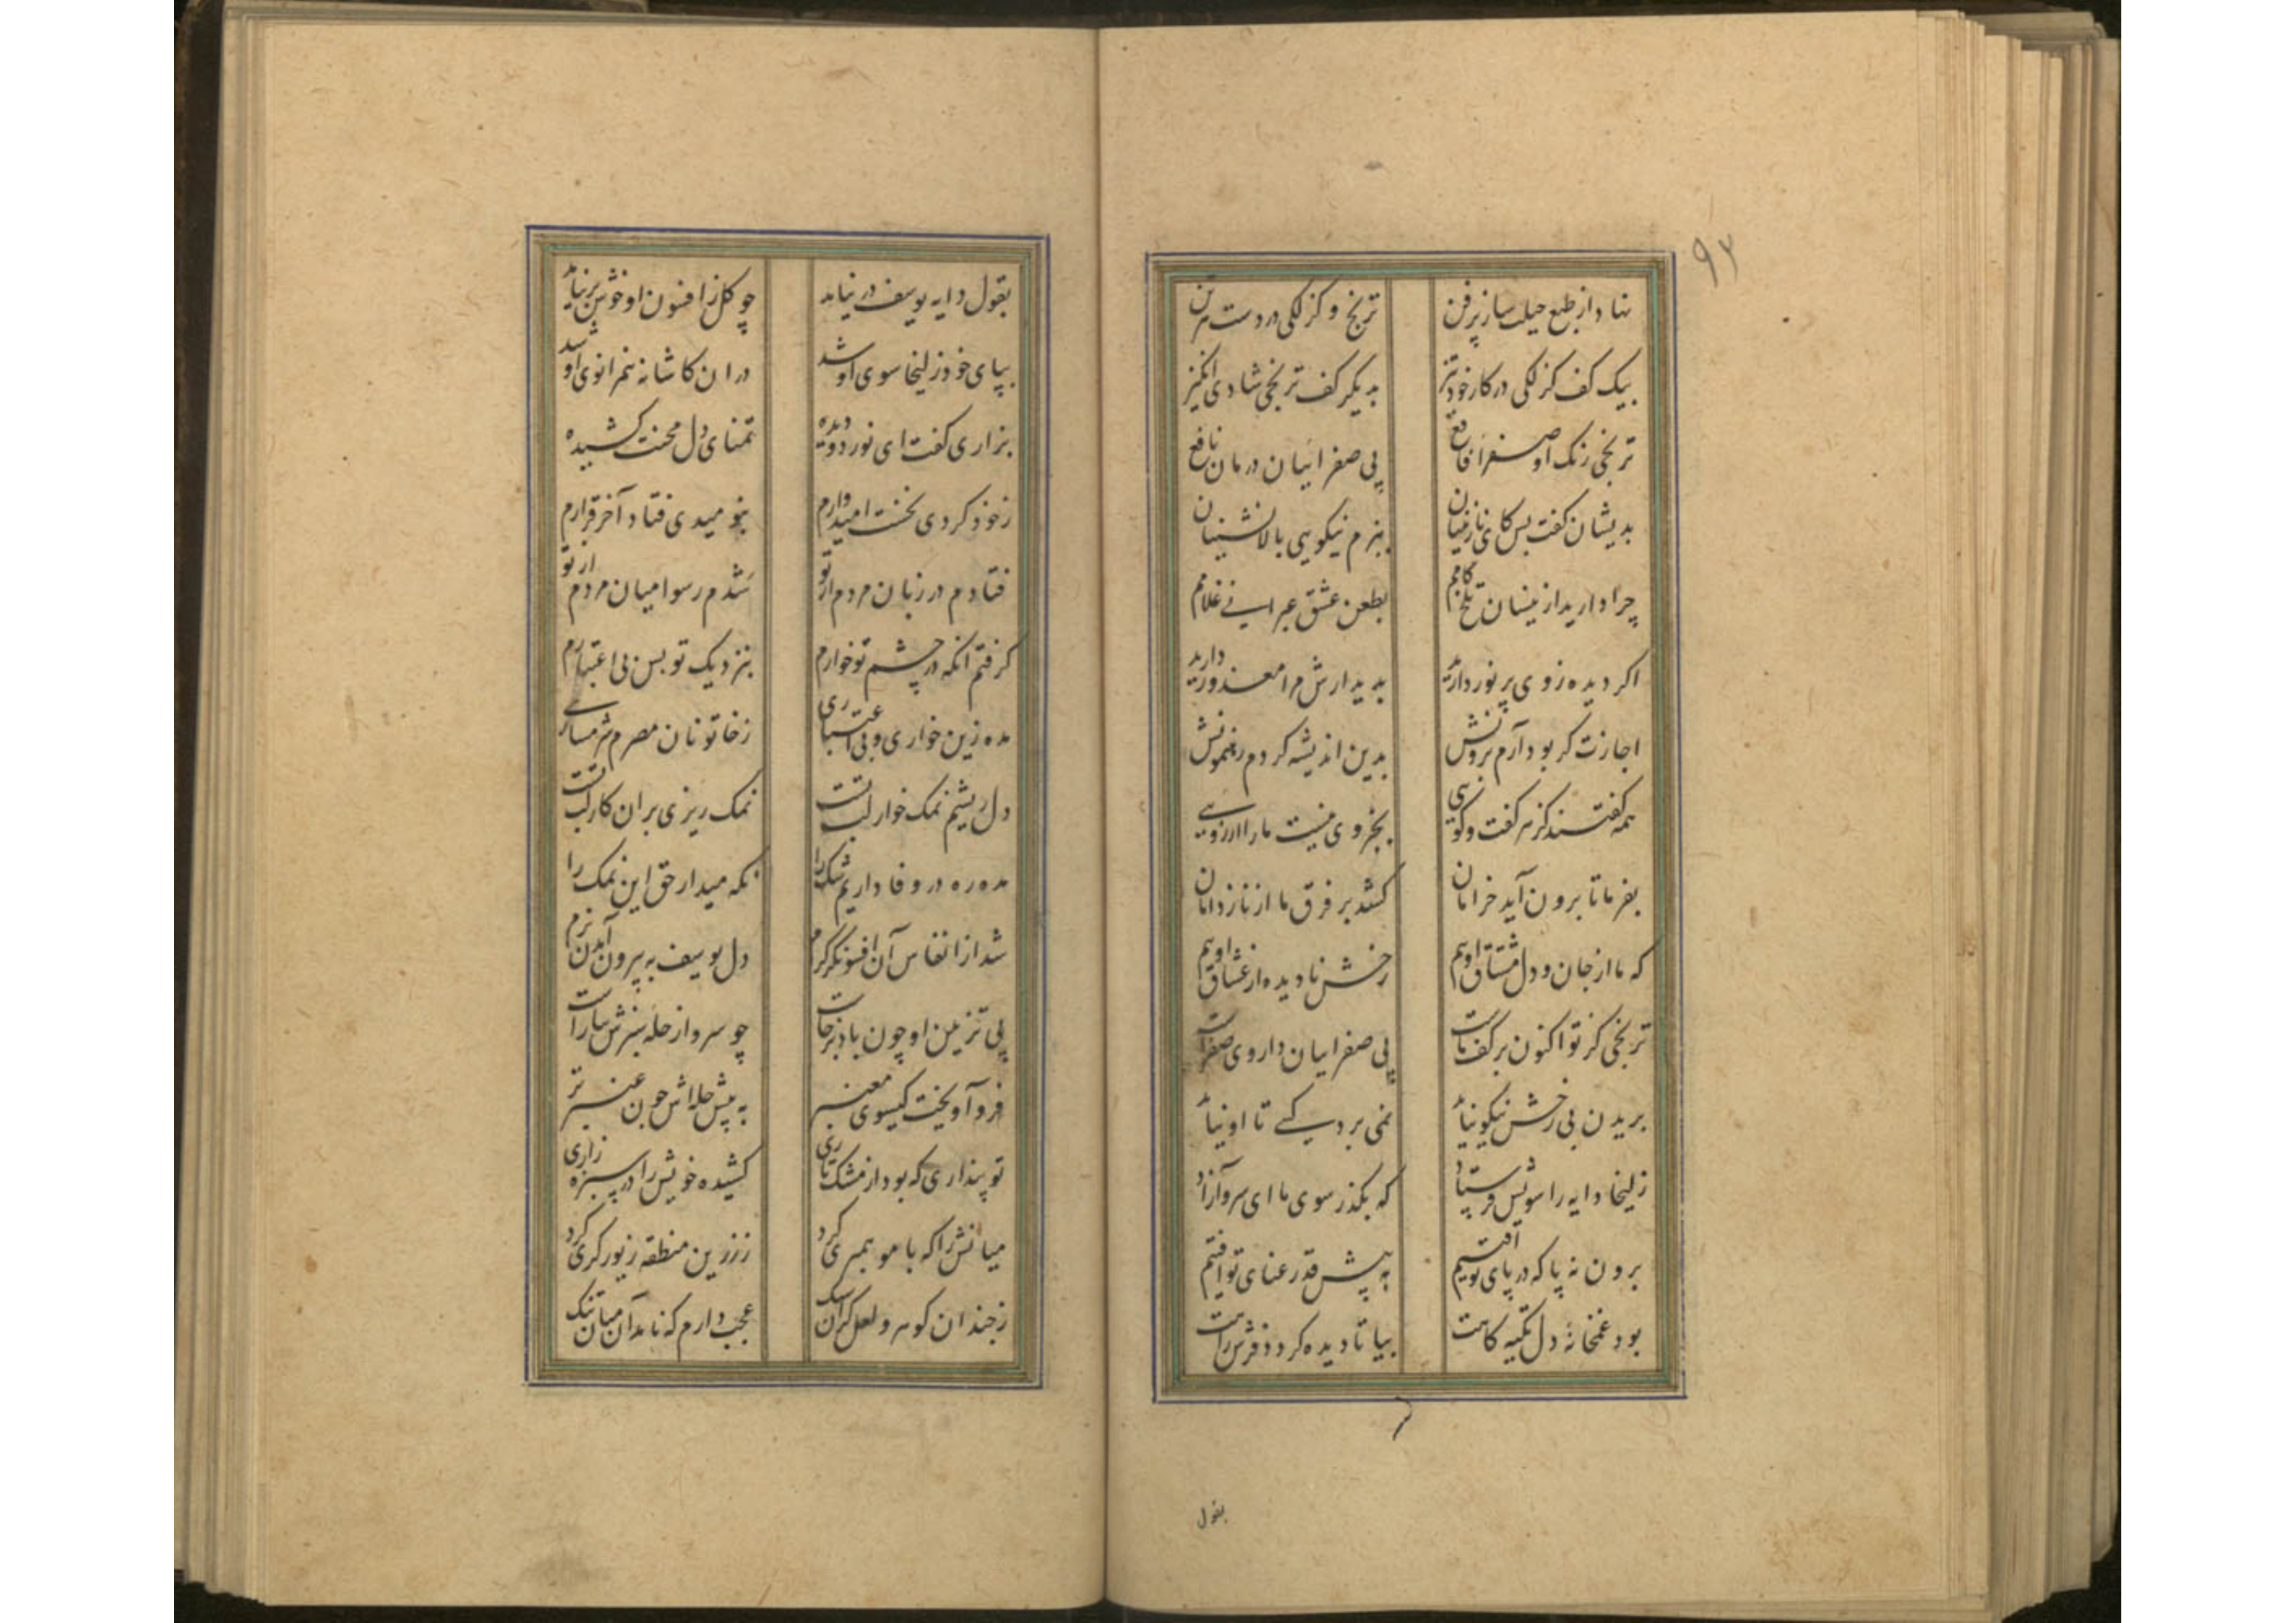 ۹۳
نهاد از طبع حیلت ساز پرفن ترنج و کزلکی در دست هر تن
بیک کف کزلکی در کار خود تیز بدیکر کف ترنجی شادی انکیز
ترنجی رنک او صفرا قافع پی صفرائیان درمان نافع
بدیشان کفت پس کای نازنینان ببزم نیکویی بالانشینان
چرا دارید ازینسان تلخ کامم بطعن عشق عبرانی غلامم
اکر دیده ز وی پر نور دارید بدیدارش مرا معذور دارید
اجازت کر بود آرم برونش بدین اندیشه کردم رهنمونش
همه کفتند کز هر کفت و کویی بجز وی نیست ما را آرزویی
بفرما تا برون آید خرامان کشد بر فرق ما از ناز دامان
که ما از جان و دل مشتاق اویم رخش نادیده از عشاق اویم
ترنجی کز تو اکنون بر کف ماست پی صفراییان داروی صفراست
بریدن بی رخش نیکو نیاید نمی برد کسی تا او نیاید
زلیخا دایه را سویش فرستاد که بکذر سوی ما ای سرو آزاد
برون نه پا که در پای تو افتیم به پیش قد رعنای تو افتیم
بود غمخانهٔ دل تکیه کاهت بیا تا دیده کردد فرش راهت
بقول
بقول دایه یوسف در نیامد چو کل ز افسون او خوش بر نیامد
بپای خود زلیخا سوی او شد در ان کاشانه هم زانوی او شد
بزاری کفت ای نور دو دیده تمنای دل محنت کشیده
ز خود کردی نخست امیدوارم بنومیدی فتاد آخر قرارم
فتادم در زبان مردم از تو شدم رسوا میان مردم از تو
کرفتم آنکه در چشم تو خوارم بنزدیک تو بس بی اعتبارم
مده زین خواری و بی اعتباری ز خاتونان مصرم شرمساری
دل ریشم نمک خوار لب تست نمک ریزی بر ان کار لب تست
مده ره در وفا داریم شک را نکه میدار حق این نمک را
شد از انفاس آن افسونکر کرم دل یوسف به بیرون آمدن نرم
پی تزیین او چون باد برخاست چو سرو از حلهٔ سبزش بیاراست
فرو آویخت کیسوی معنبر به پیش حله اش چون عنبر تر
تو پنداری که بود از مشک تاری کشیده خویش را در سبزه زاری
میانش را که با مو همسری کرد ز زرین منطقه زیور کری کرد
ز چندان کوهر و لعل کران سنک عجب دارم که نامد آن میان تنک